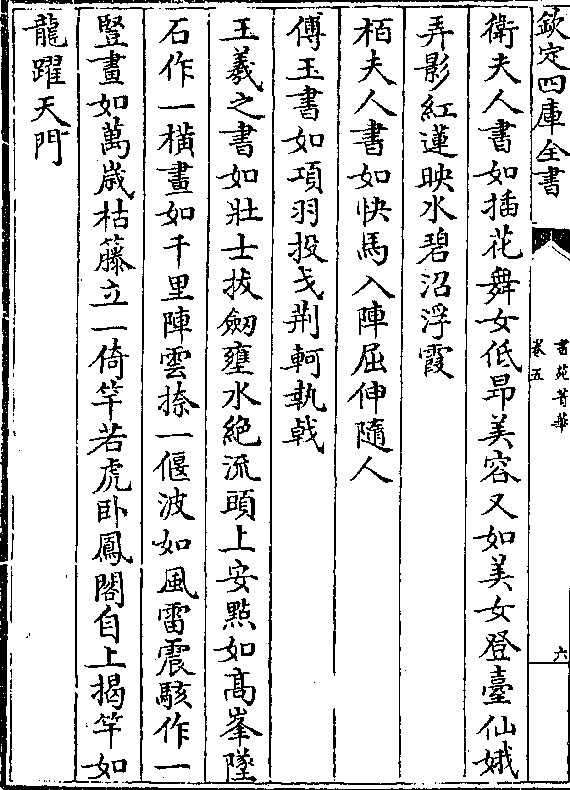 欽定四庫全書
書苑菁華
卷五
六
衛夫人書如插花舞女低昂美容又如美女登臺仙娥
弄影紅蓮映水碧沼浮霞
栢夫人書如快馬入陣屈伸隨人
傅玉書如項羽投戈荆軻執戟
王羲之書如壯士拔劒壅水絶流頭上安㸃如髙峯墜
石作一橫畫如千里陣雲捺一偃波如風雷震駭作一
豎畫如萬歲枯籐立一倚竿若虎卧鳳閣自上揭竿如
龍躍天門